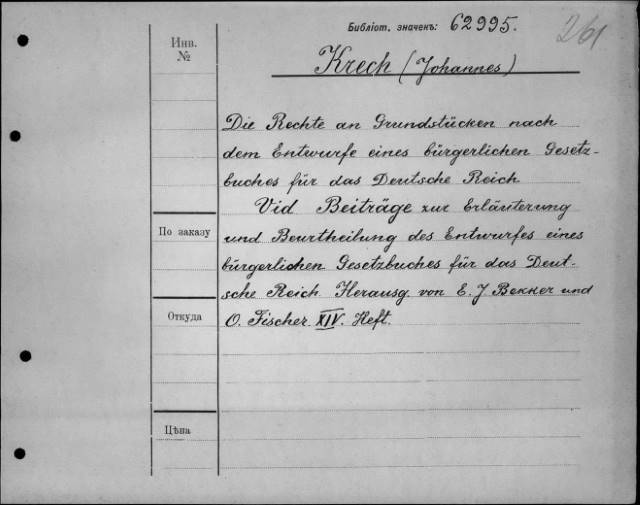 Библіот. значекъ: 62995.
261
Инв.
№
Krech (Johannes)
Die Rechte an Grundstücken nach
dem Entwurfe eines bürgerlichen Gesetz-
buches für das Deutsche Reich
Vid Beiträge zur Erläuterung
По заказу
und Beurtheilung des Entwurfes eines
bürgerlichen Gesetzbuches für das Deut-
sche Reich Herausg. von E. J Bekker und
Откуда
O. Fischer XIV. Heft.
Цѣна